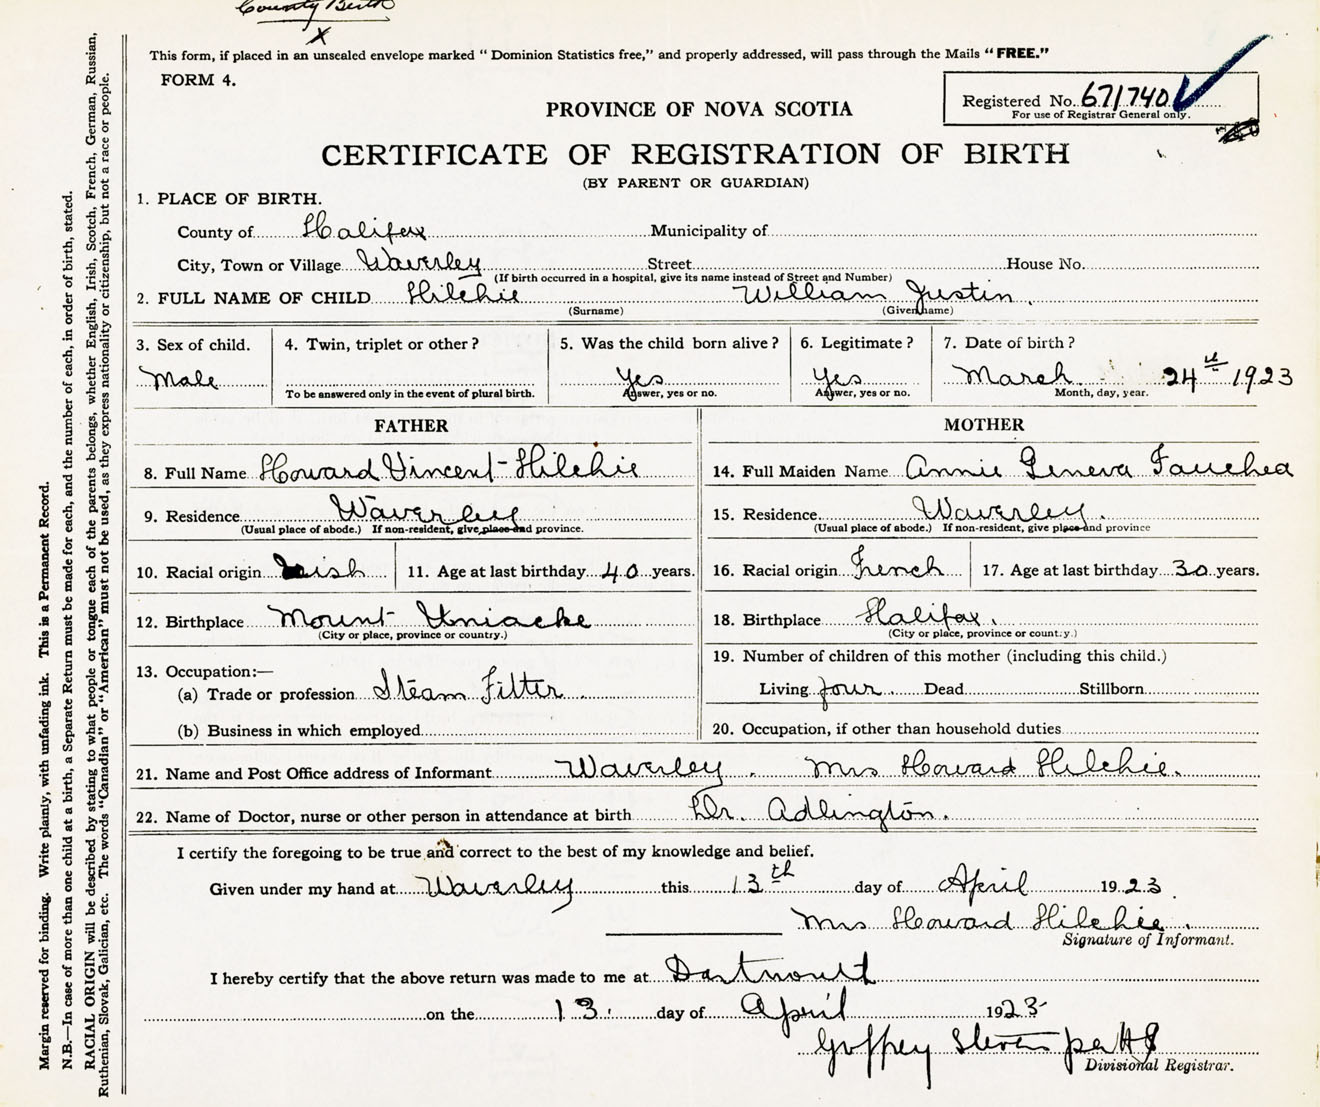 County Birth
X
This form, if placed in an unsealed envelope marked “ Dominion Statistics free,” and properly addressed, will pass through the Mails “FREE.”
FORM 4.
Registered No. 671740
For use of Registrar General only.
PROVINCE OF NOVA SCOTIA
CERTIFICATE OF REGISTRATION OF BIRTH
(BY PARENT OR GUARDIAN)
1. PLACE OF BIRTH.
County of Halifax Municipality of
City, Town or Village Waverley Street House No.
(If birth occurred in a hospital, give its name instead of Street and Number)
2. FULL NAME OF CHILD Hilchie William Justin.
(Surname) (Given name)
3. Sex of child. 4. Twin, triplet or other? 5. Was the child born alive? 6. Legitimate? 7. Date of birth?
Male Yes Yes March 24th 1923
To be answered only in the event of plural birth. Answer, yes or no. Answer, yes or no. Month, day, year.
FATHER MOTHER
8. Full Name Howard Vincent Hilchie 14. Full Maiden Name Annie Geneva
9. Residence Waverley 15. Residence Waverley.
(Usual place of abode.) If non-resident, give place and province. (Usual place of abode.) If non-resident, give place and province
10. Racial origin Irish 11. Age at last birthday 40 years. 16. Racial origin French 17. Age at last birthday 30 years.
12. Birthplace Mount Uniacke 18. Birthplace Halifax.
(City or place, province or country.) (City or place, province or country.)
13. Occupation:— 19. Number of children of this mother (including this child.)
(a) Trade or profession Steam Fitter. Living four. Dead Stillborn
(b) Business in which employed 20. Occupation, if other than household duties
21. Name and Post Office address of Informant Waverley. Mrs Howard Hilchie.
22. Name of Doctor, nurse or other person in attendance at birth Dr. Adlington.
I certify the foregoing to be true and correct to the best of my knowledge and belief.
Given under my hand at Waverley this 13th day of April 1923
Mrs Howard Hilchie.
Signature of Informant.
I hereby certify that the above return was made to me at Dartmouth
on the 13. day of April 1923
per
Divisional Registrar.
Margin reserved for binding. Write plainly, with unfading ink. This is a Permanent Record.
N.B.—In case of more than one child at a birth, a Separate Return must be made for each, and the number of each, in order of birth, stated.
RACIAL ORIGIN will be described by stating to what people or tongue each of the parents belongs, whether English, Irish, Scotch, French, German, Russian,
Ruthenian, Slovak, Galician, etc. The words “Canadian” or “American” must not be used, as they express nationality or citizenship, but not a race or people.